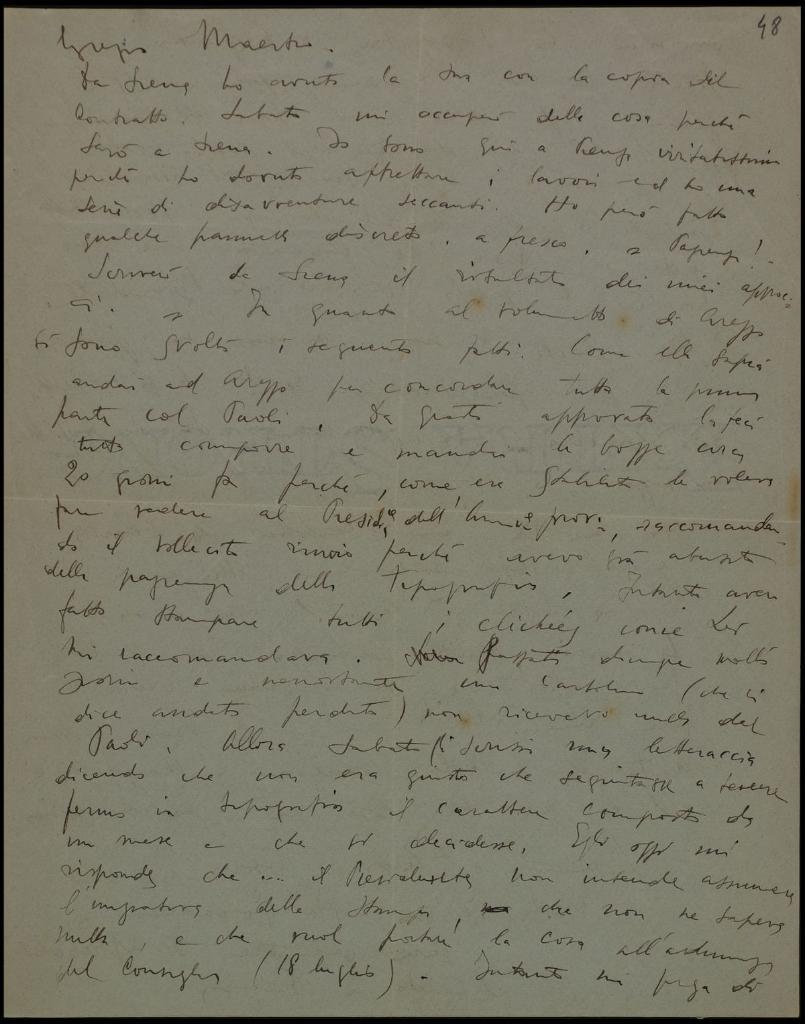 48
Maestro.
Da Siena ho avuto la sua con la copia del
Contratto. Sabato mi occuperò della cosa perché
sarò a Siena. Io sono qui a
perché ho dovuto affrettare i lavori ed ho una
serie di disavventure seccanti. Ho però fatto
qualche pannello discreto, a fresco,
Scriverò da Siena il risultato dei miei approc=
ci. In quanto al volumetto di Arezzo
si sono svolti i seguenti fatti. Come ella saprà
andai ad Arezzo per concordare tutta la prima
parte col Paoli, da questi approvata la feci
tutta comporre e mandai le bozze circa
20 giorni fa perché, come era stabilito le voleva
far vedere al Preside dell' prov., raccomandan=
do il sollecito rinvio perché avevo già abusato
della pazienza della Tipografia, Intanto avevo
fatto stampare tutti i clichées come Lei
mi raccomandava. Passati dunque molti
giorni e nonostante una cartolina (che si
dice andata perduta) non ricevevo nulla dal
Paoli. Allora Sabato gli scrissi una letteraccia
dicendo che non era giusto che seguitasse a tenere
fermo in tipografia il carattere composto da
un mese e che si decidesse. Egli oggi mi
risponde che ... il Preside non intende assumere
della stampa, che non ne sapeva
nulla, e che vuol portare la cosa all'adunanza
del Consiglio (18 luglio). Intanto mi prega di